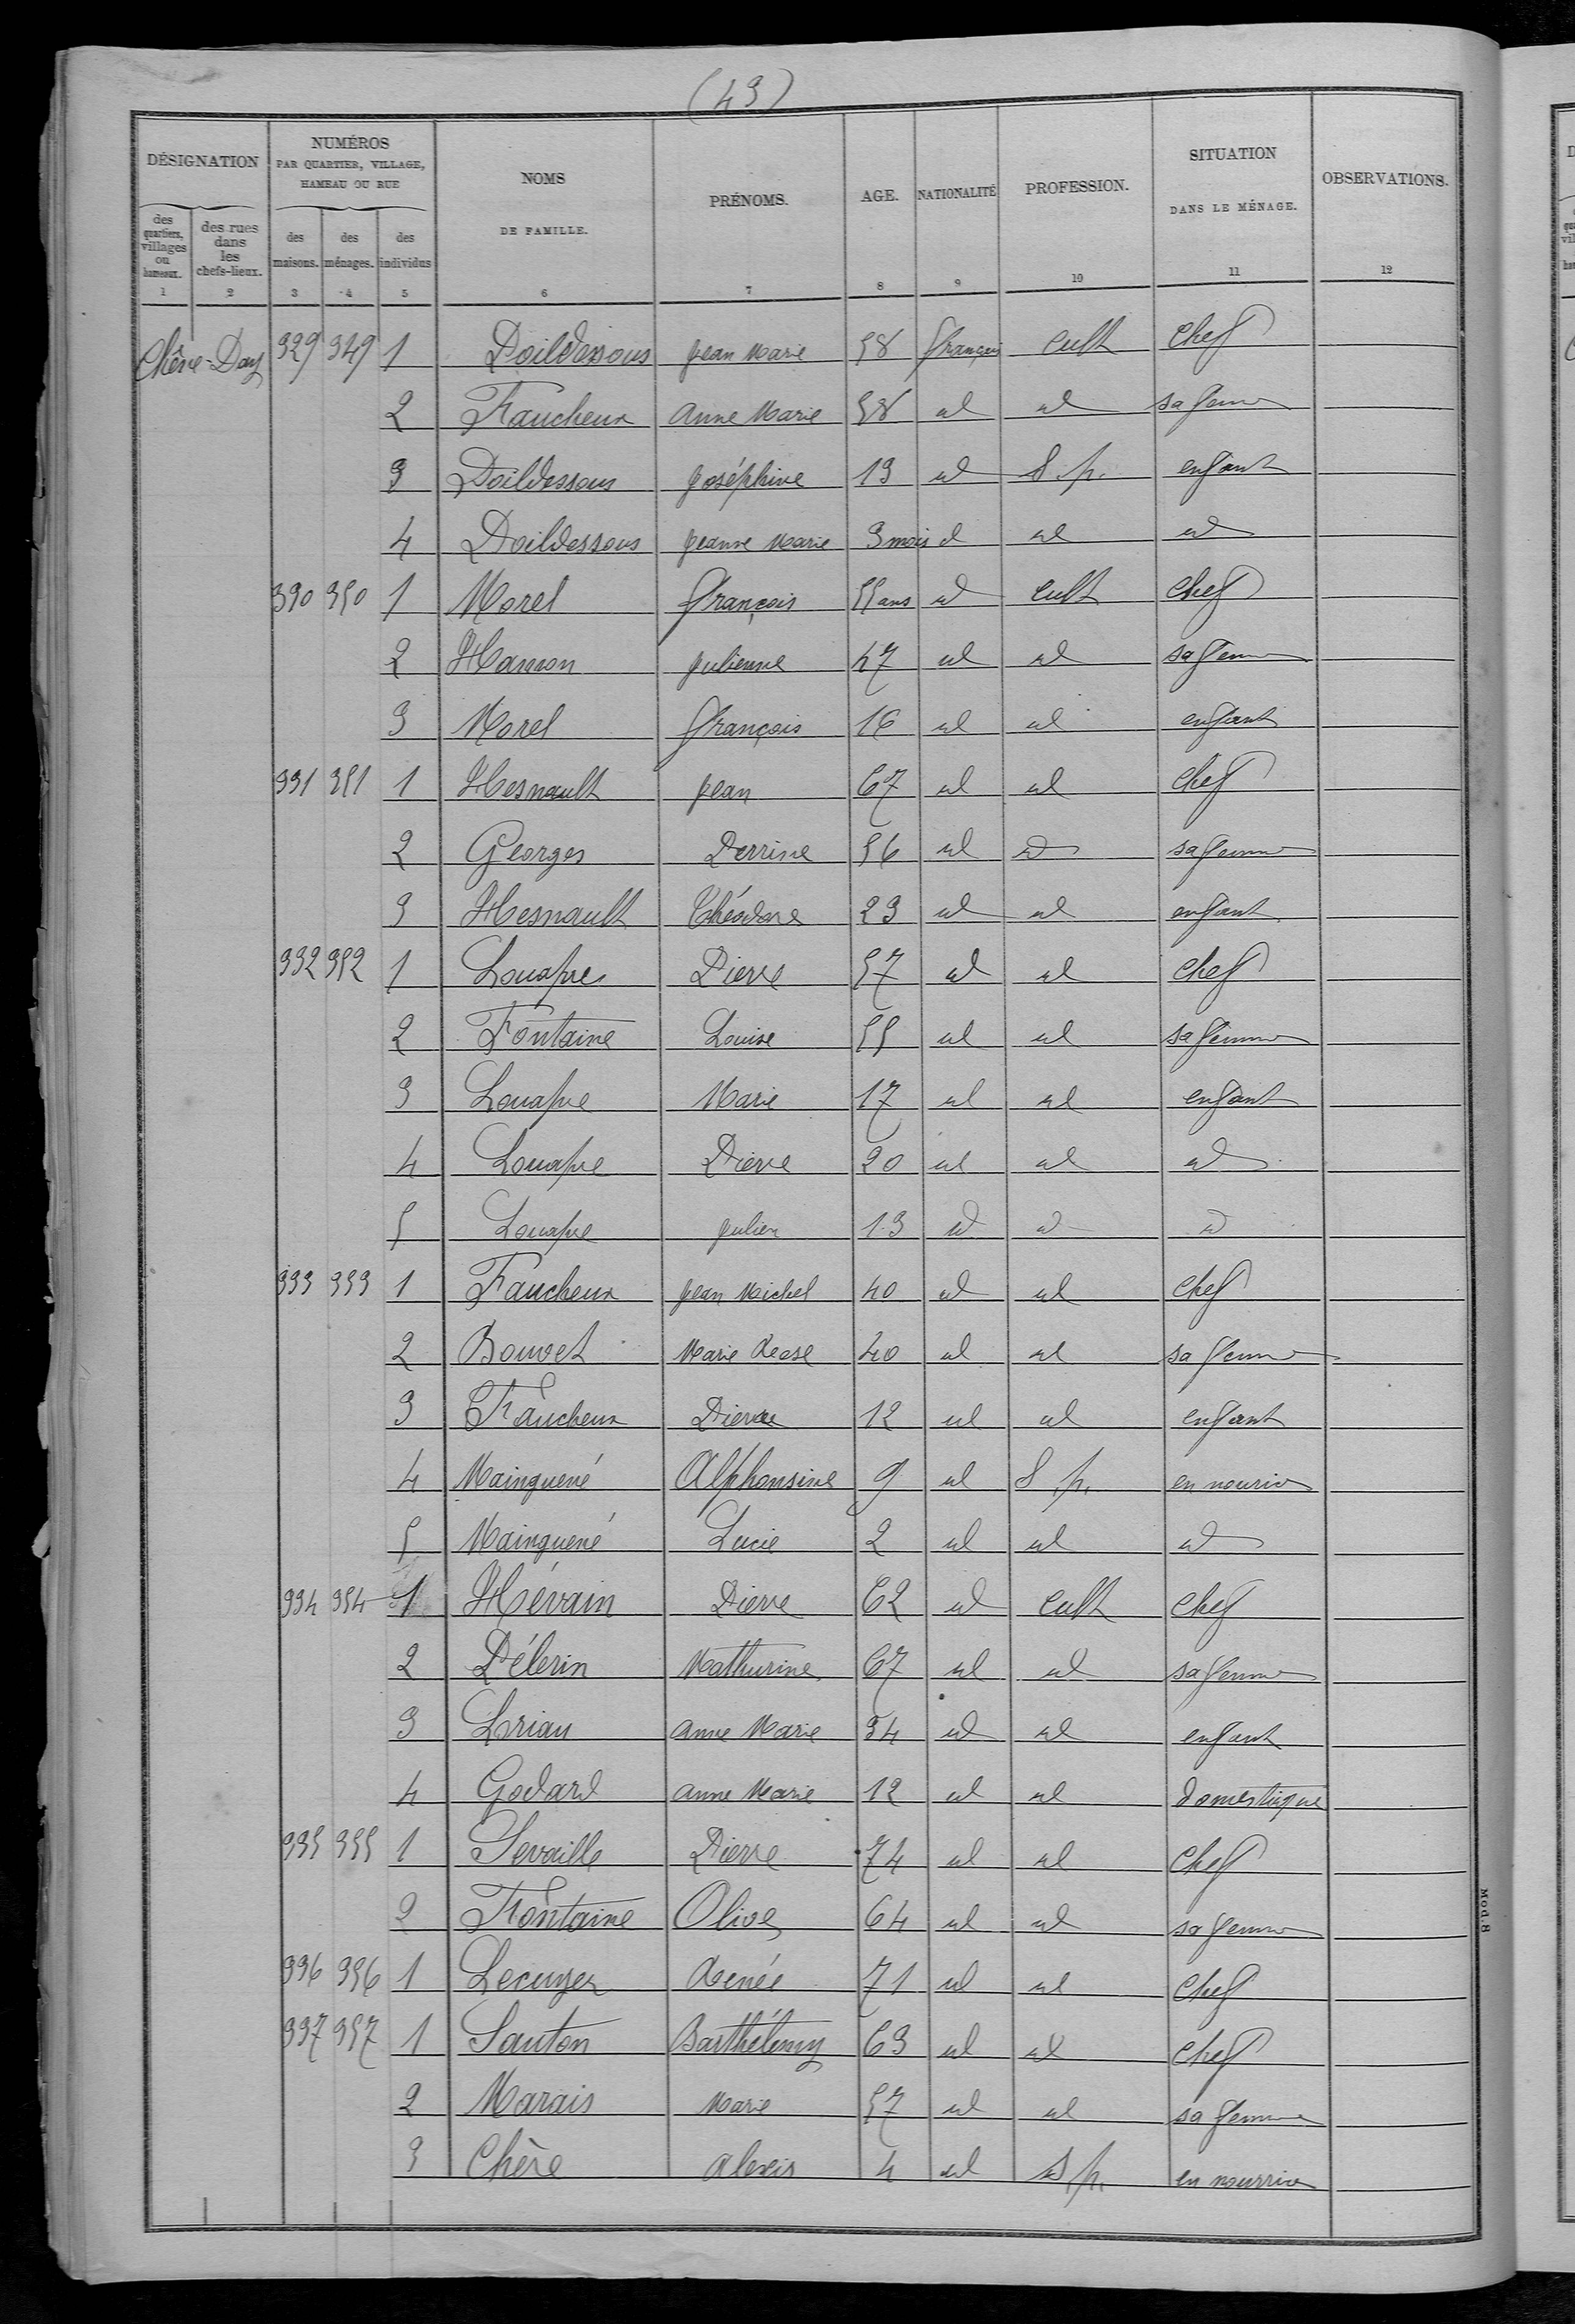 (43)
DÉSIGNATION
NUMÉROS
PAR QUARTIER, VILLAGE,
HAMEAU OU RUE
NOMS
DE FAMILLE.
PRÉNOMS.
AGE.
NATIONALITÉ
PROFESSION.
SITUATION
DANS LE MÉNAGE.
OBSERVATIONS.
des quartiers, villages ou hameaux.
des rues dans les chefs-lieux.
des maisons.
des ménages.
des individus
1 2 3 4 5 6 7 8 9 10 11 12
Chêne-Day 329 349 1 Poildessous Jean Marie 58 français cult chef
2 Faucheux Anne Marie 58 id id sa femme
3 Poildessous Joséphine 13 id S.p. enfant
4 Poildessous Jeanne Marie 3 mois id id id
330 350 1 Morel François 55 ans id cult chef
2 Hamon Julienne 47 id id sa femme
3 Morel François 16 id id enfant
331 351 1 Hesnault Jean 67 id id chef
2 Georges Perrine 56 id id sa femme
3 Hesnault Théodore 23 id id enfant
332 352 1 Louapre Pierre 57 id id chef
2 Fontaine Louise 55 id id sa femme
3 Louapre Marie 17 id id enfant
4 Louapre Pierre 20 id id id
5 Louapre Julien 13 id id id
333 353 1 Faucheux Jean Michel 40 id id chef
2 Bouvet Marie Rose 40 id id sa femme
3 Faucheux Pierre 12 id id enfant
4 Mainguené Alphonsine 9 id S.p. en nourice
5 Mainguené Lucie 2 id id id
334 354 1 Hévain Pierre 62 id cult chef
2 Pélerin Mathurine 67 id id sa femme
3 Lriau Anne Marie 34 id id enfant
4 Godard Anne Marie 12 id id domestique
335 355 1 Sevaille Pierre 74 id id chef
2 Fontaine Olive 64 id id sa femme
336 356 1 Lecuyer Renée 71 id id chef
337 357 1 Sauton Barthélemy 63 id id chef
2 Marais Marie 57 id id sa femme
3 Chère Alexis 4 id S.p. en nourrice
Mod. 8